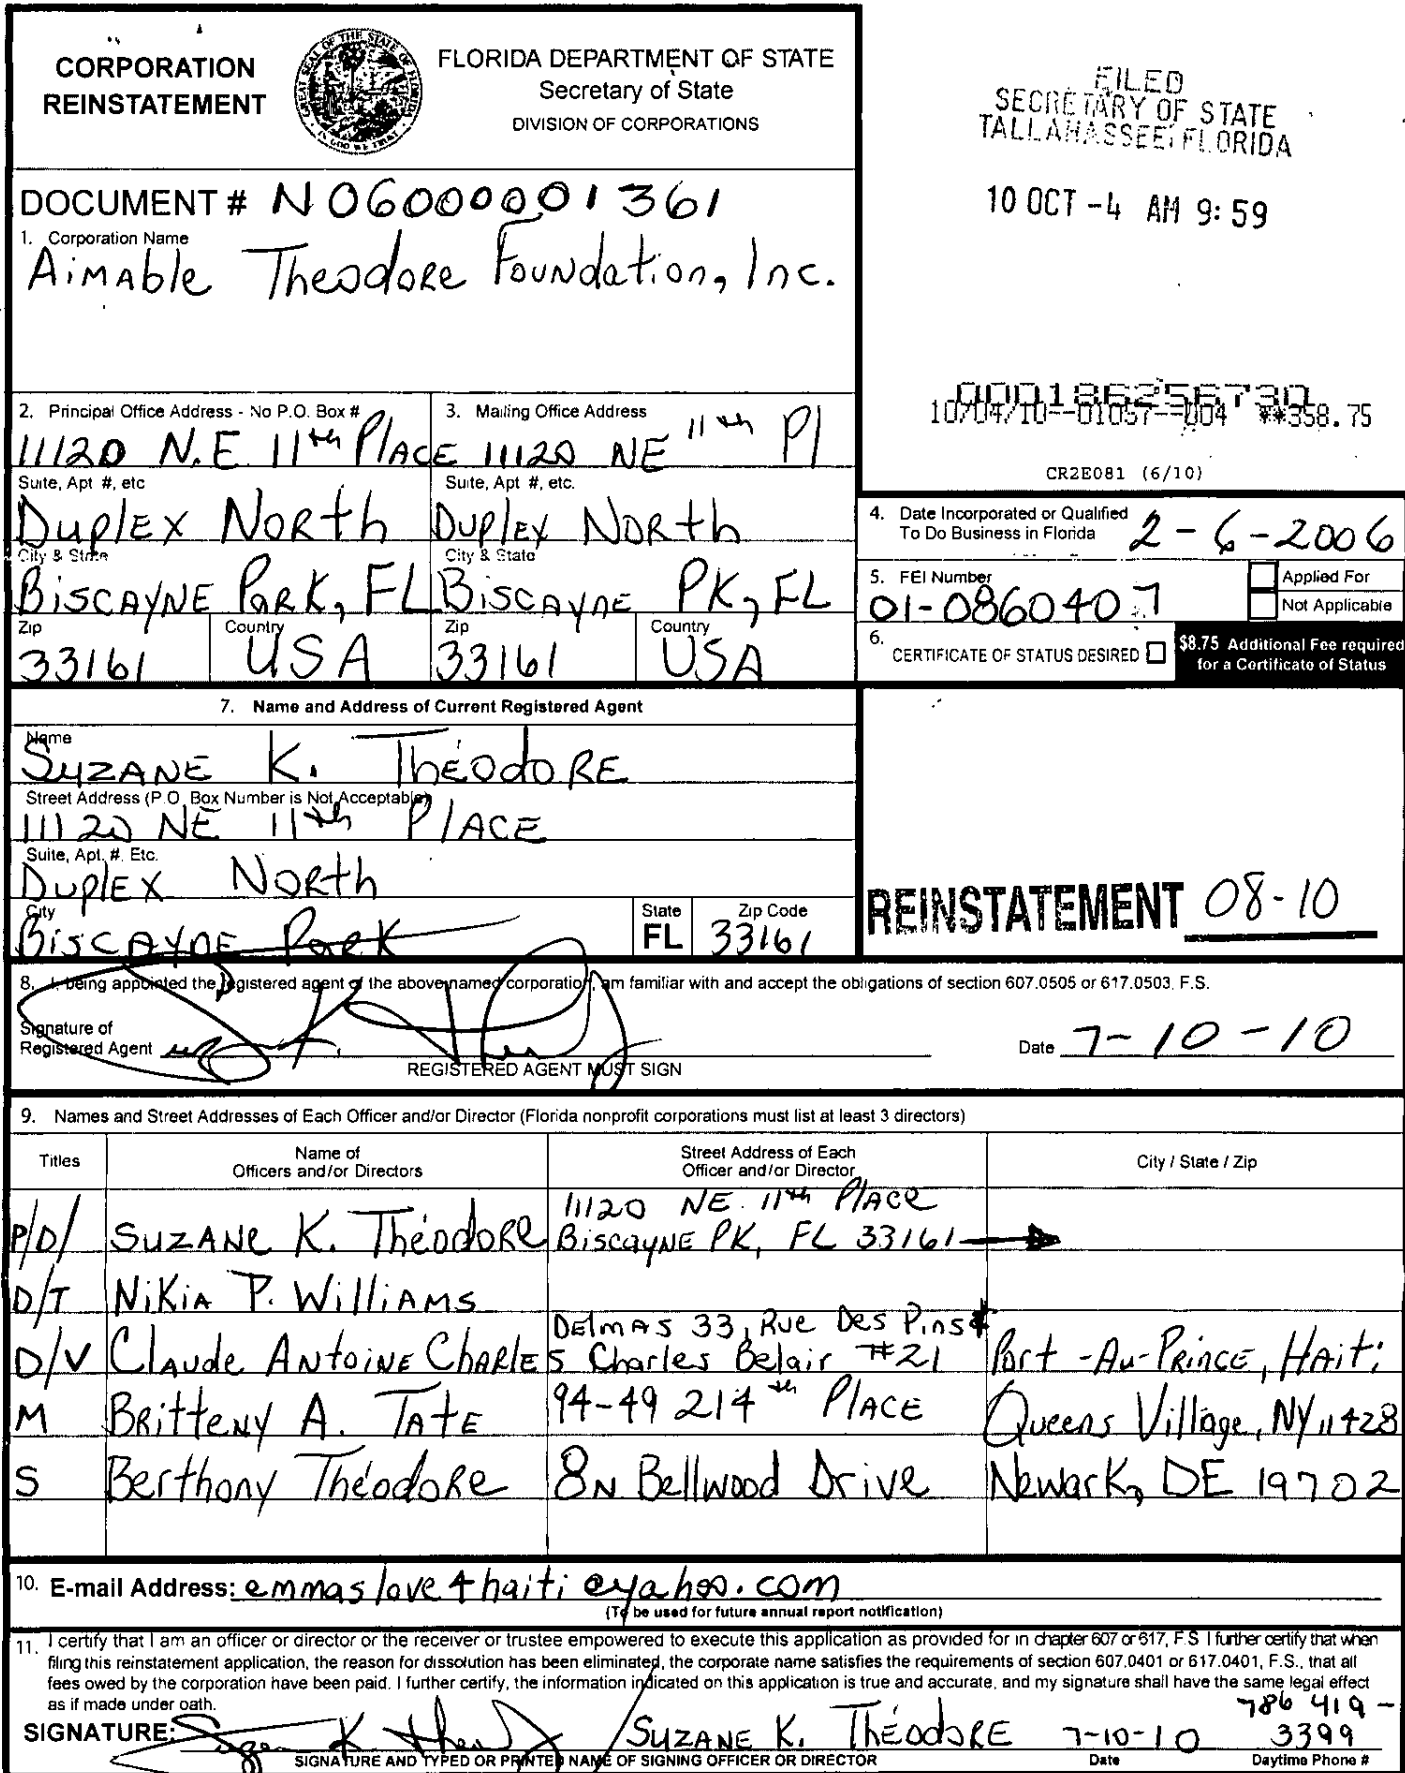 CORPORATION
REINSTATEMENT
GREAT SEAL OF THE STATE OF FLORIDA
IN GOD WE TRUST
FLORIDA DEPARTMENT OF STATE
Secretary of State
DIVISION OF CORPORATIONS
FILED
SECRETARY OF STATE
TALLAHASSEE, FLORIDA
10 OCT -4 AM 9:59
DOCUMENT # N06000001361
1. Corporation Name
Aimable Theodore Foundation, Inc.
000186256730
10/04/10--01057--004 **358.75
CR2E081 (6/10)
2. Principal Office Address - No P.O. Box #
11120 N.E. 11th Place
3. Mailing Office Address
11120 NE 11th Pl
Suite, Apt #, etc
Duplex North
Suite, Apt #, etc.
Duplex North
City & State
Biscayne Park, FL
City & State
Biscayne PK, FL
Zip
33161
Country
USA
Zip
33161
Country
USA
4. Date Incorporated or Qualified
To Do Business in Florida 2-6-2006
5. FEI Number
01-0860407
Applied For
Not Applicable
6. CERTIFICATE OF STATUS DESIRED
$8.75 Additional Fee required
for a Certificate of Status
7. Name and Address of Current Registered Agent
Name
Suzane K. Théodore
Street Address (P.O. Box Number is Not Acceptable)
11120 NE 11th Place
Suite, Apt. #, Etc.
Duplex North
City
Biscayne Park
State
FL
Zip Code
33161
REINSTATEMENT 08-10
8. I, being appointed the registered agent of the above named corporation, am familiar with and accept the obligations of section 607.0505 or 617.0503, F.S.
Signature of
Registered Agent
REGISTERED AGENT MUST SIGN
Date 7-10-10
9. Names and Street Addresses of Each Officer and/or Director (Florida nonprofit corporations must list at least 3 directors)
Titles
Name of
Officers and/or Directors
Street Address of Each
Officer and/or Director
City / State / Zip
P/D/ Suzane K. Théodore 11120 NE 11th Place
Biscayne PK, FL 33161
D/T Nikia P. Williams
D/V Claude Antoine Charles Delmas 33, Rue Des Pins &
Charles Belair #21 Port-Au-Prince, Haiti
M Britteny A. Tate 94-49 214th Place Queens Village, NY 11428
S Berthony Théodore 8N Bellwood Drive Newark, DE 19702
10. E-mail Address: emmaslove4haiti@yahoo.com
(To be used for future annual report notification)
11. I certify that I am an officer or director or the receiver or trustee empowered to execute this application as provided for in chapter 607 or 617, F.S. I further certify that when
filing this reinstatement application, the reason for dissolution has been eliminated, the corporate name satisfies the requirements of section 607.0401 or 617.0401, F.S., that all
fees owed by the corporation have been paid. I further certify, the information indicated on this application is true and accurate, and my signature shall have the same legal effect
as if made under oath.
SIGNATURE: Suzane K. Théodore / Suzane K. Théodore 7-10-10 786 419-
3399
SIGNATURE AND TYPED OR PRINTED NAME OF SIGNING OFFICER OR DIRECTOR
Date
Daytime Phone #